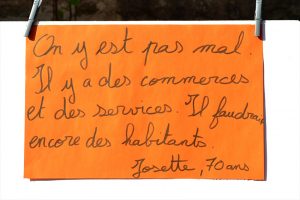 On y est pas mal.
Il y a des commerces
et des services. Il faudrait
encore des habitants.
Josette, 70 ans